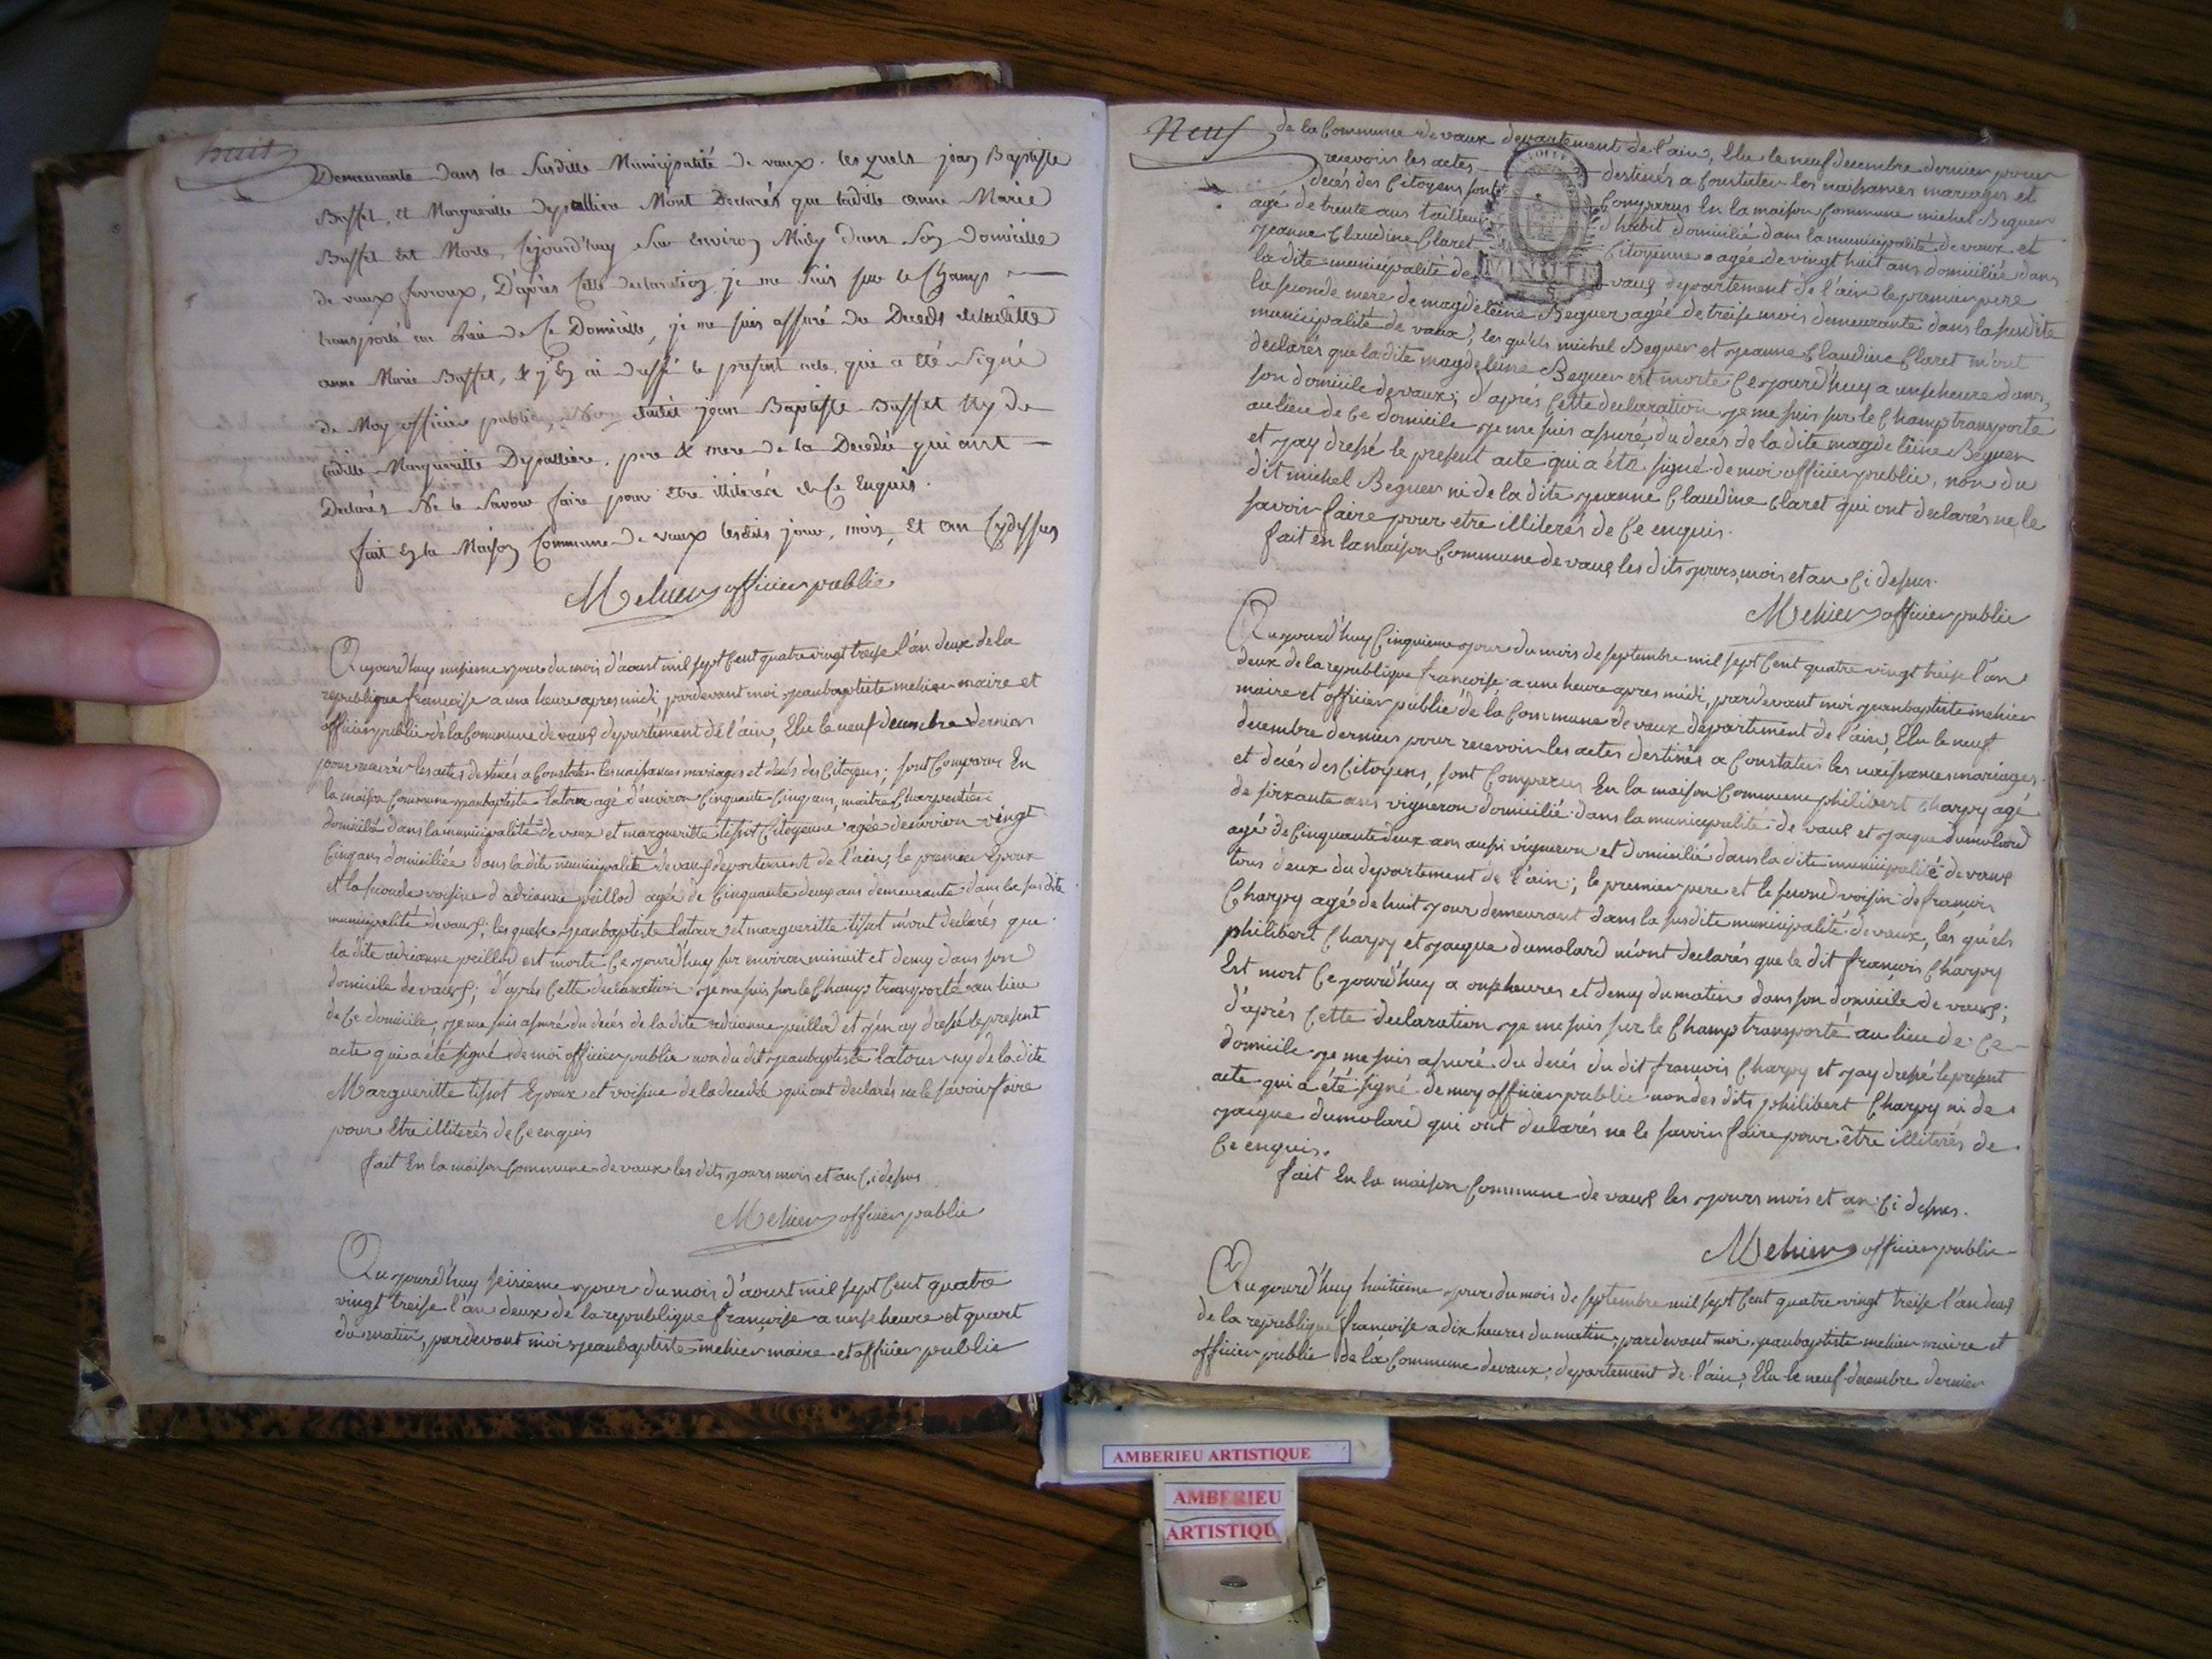 huit
Demeurante dans la susditte Municipalité de vaux. les quels jean Baptiste
Buffet, et Margueritte Depallière M'ont Declarés que laditte anne Marie
Buffet Est Morte, Cejourd'huy sur environ Midy dans son Domicille
de vaux fevroux, D'après Cette declaration je me suis sur le Champ
transporté au lieu de Ce Domicille, je me suis assuré du Decès de laditte
anne Marie Buffet, & j'En ai dressé le present acte, qui a été signé
de Moy officier public, Non dudit jean Baptiste Buffet Ny de
laditte Margueritte Depallière, pere & mere de la Decedée qui ont
Declarés Ne le savoir faire pour être illiterés de Ce Enquis.
fait En la Maison Commune de vaux lesdits jour, mois, Et an Cydessus
Mehier officier public
Aujourd'huy unsieme jour du mois d'aoust mil sept Cent quatre vingt treise l'an deux de la
republique francoise a une heure apres midi, pardevant moi jeanbaptiste mehier maire et
officier public de la Commune de vaux departement de l'ain, Elu le neuf decembre dernier
pour recevoir les actes destinés a Constater les naissances mariages et decés des Citoyens; sont Comparus En
la maison Commune jeanbaptiste latour agé d'environ Cinquante Cinq ans, maitre Charpentier
domicilié dans la municipalité de vaux et margueritte tissot Citoyenne agée denviron vingt
Cinq ans domiciliée dans la dite municipalité de vaux departement de l'ain, le premier Epoux
et la seconde voisine d'adrianne peillod agée de Cinquante deux ans demeurante dans la susdite
municipalité de vaux; les quels jeanbaptiste latour et margueritte tissot m'ont declarés que
la dite adrianne peillod est morte Cejourd'huy sur environ minuit et demy dans son
domicile de vaux; d'après Cette declaration je me suis sur le Champ transporté au lieu
de Ce domicile, je me suis assuré du decés de la dite adrianne peillod et j'en ay dressé le present
acte qui a été signé de moi officier public non du dit jeanbaptiste latour ny de la dite
Margueritte tissot Epoux et voisine de la decedée qui ont declarés ne le savoir faire
pour Etre illiterés de Ce enquis
fait En la maison Commune de vaux les dits jours mois et an Ci dessus
Mehier officier public
Aujourd'huy seisieme jour du mois d'aoust mil sept Cent quatre
vingt treise l'an deux de la republique francoise a unse heure et quart
du matin, pardevant moi jeanbaptiste mehier maire et officier public
Neuf
de la Commune de vaux departement de l'ain, Elu le neuf decembre dernier pour
recevoir les actes destinés a Constater les naissances mariages et
decés des Citoyens sont Comparus En la maison Commune michel Beguer
agé de trente ans tailleur d'habit domicilié dans la municipalité de vaux et
jeanne Claudine Claret Citoyenne agée de vingt huit ans domiciliée dans
la dite municipalité de vaux departement de l'ain le premier pere
la seconde mere de magdeleine Beguer agée de treise mois demeurante dans la susdite
municipalité de vaux; les quels michel Beguer et jeanne Claudine Claret m'ont
declarés que la dite magdeleine Beguer est morte Cejourd'huy a unse heure dans
son domicile de vaux; d'aprés Cette declaration je me suis sur le Champ transporté
au lieu de Ce domicile je me suis assuré du decés de la dite magdeleine Beguer
et j'ay dressé le present acte qui a été signé de moi officier public, non du
dit michel Beguer ni de la dite jeanne Claudine Claret qui ont declarés ne le
savoir faire pour etre illiterés de Ce enquis.
fait en la maison Commune de vaux les dits jours, mois et an Ci dessus.
Mehier officier public
Aujourd'huy Cinquieme jour du mois de septembre mil sept Cent quatre vingt treise l'an
deux de la republique francoise a une heure apres midi, pardevant moi jeanbaptiste mehier
maire et officier public de la Commune de vaux departement de l'ain, Elu le neuf
decembre dernier pour recevoir les actes destinés a Constater les naissances mariages
et decés des Citoyens, sont Comparus En la maison Commune philibert Charpy agé
de soixante ans vigneron domicilié dans la municipalité de vaux et jacque dumolard
agé de Cinquante deux ans aussi vigneron et domicilié dans la dite municipalité de vaux
tous deux du departement de l'ain; le premier pere et le second voisin de francois
Charpy agé de huit jour demeurant dans la susdite municipalité de vaux, les quels
philibert Charpy et jacque dumolard m'ont declarés que le dit francois Charpy
Est mort Cejourd'huy a onse heures et demy du matin dans son domicile de vaux;
d'aprés Cette declaration je me suis sur le Champ transporté au lieu de Ce
domicile je me suis assuré du decés du dit francois Charpy et j'ay dressé le present
acte qui a été signé de moy officier public non des dits philibert Charpy ni de
jacque dumolard qui ont declarés ne le savoir faire pour être illiterés de
Ce enquis.
fait En la maison Commune de vaux les jours mois et an Ci dessus.
Mehier officier public
Aujourd'huy huitieme jour du mois de septembre mil sept Cent quatre vingt treise l'an deux
de la republique francoise a dix heures du matin, pardevant moi jeanbaptiste mehier maire et
officier public de la Commune de vaux, departement de l'ain, Elu le neuf decembre dernier
MINUTE
AMBERIEU ARTISTIQUE
AMBERIEU
ARTISTIQU